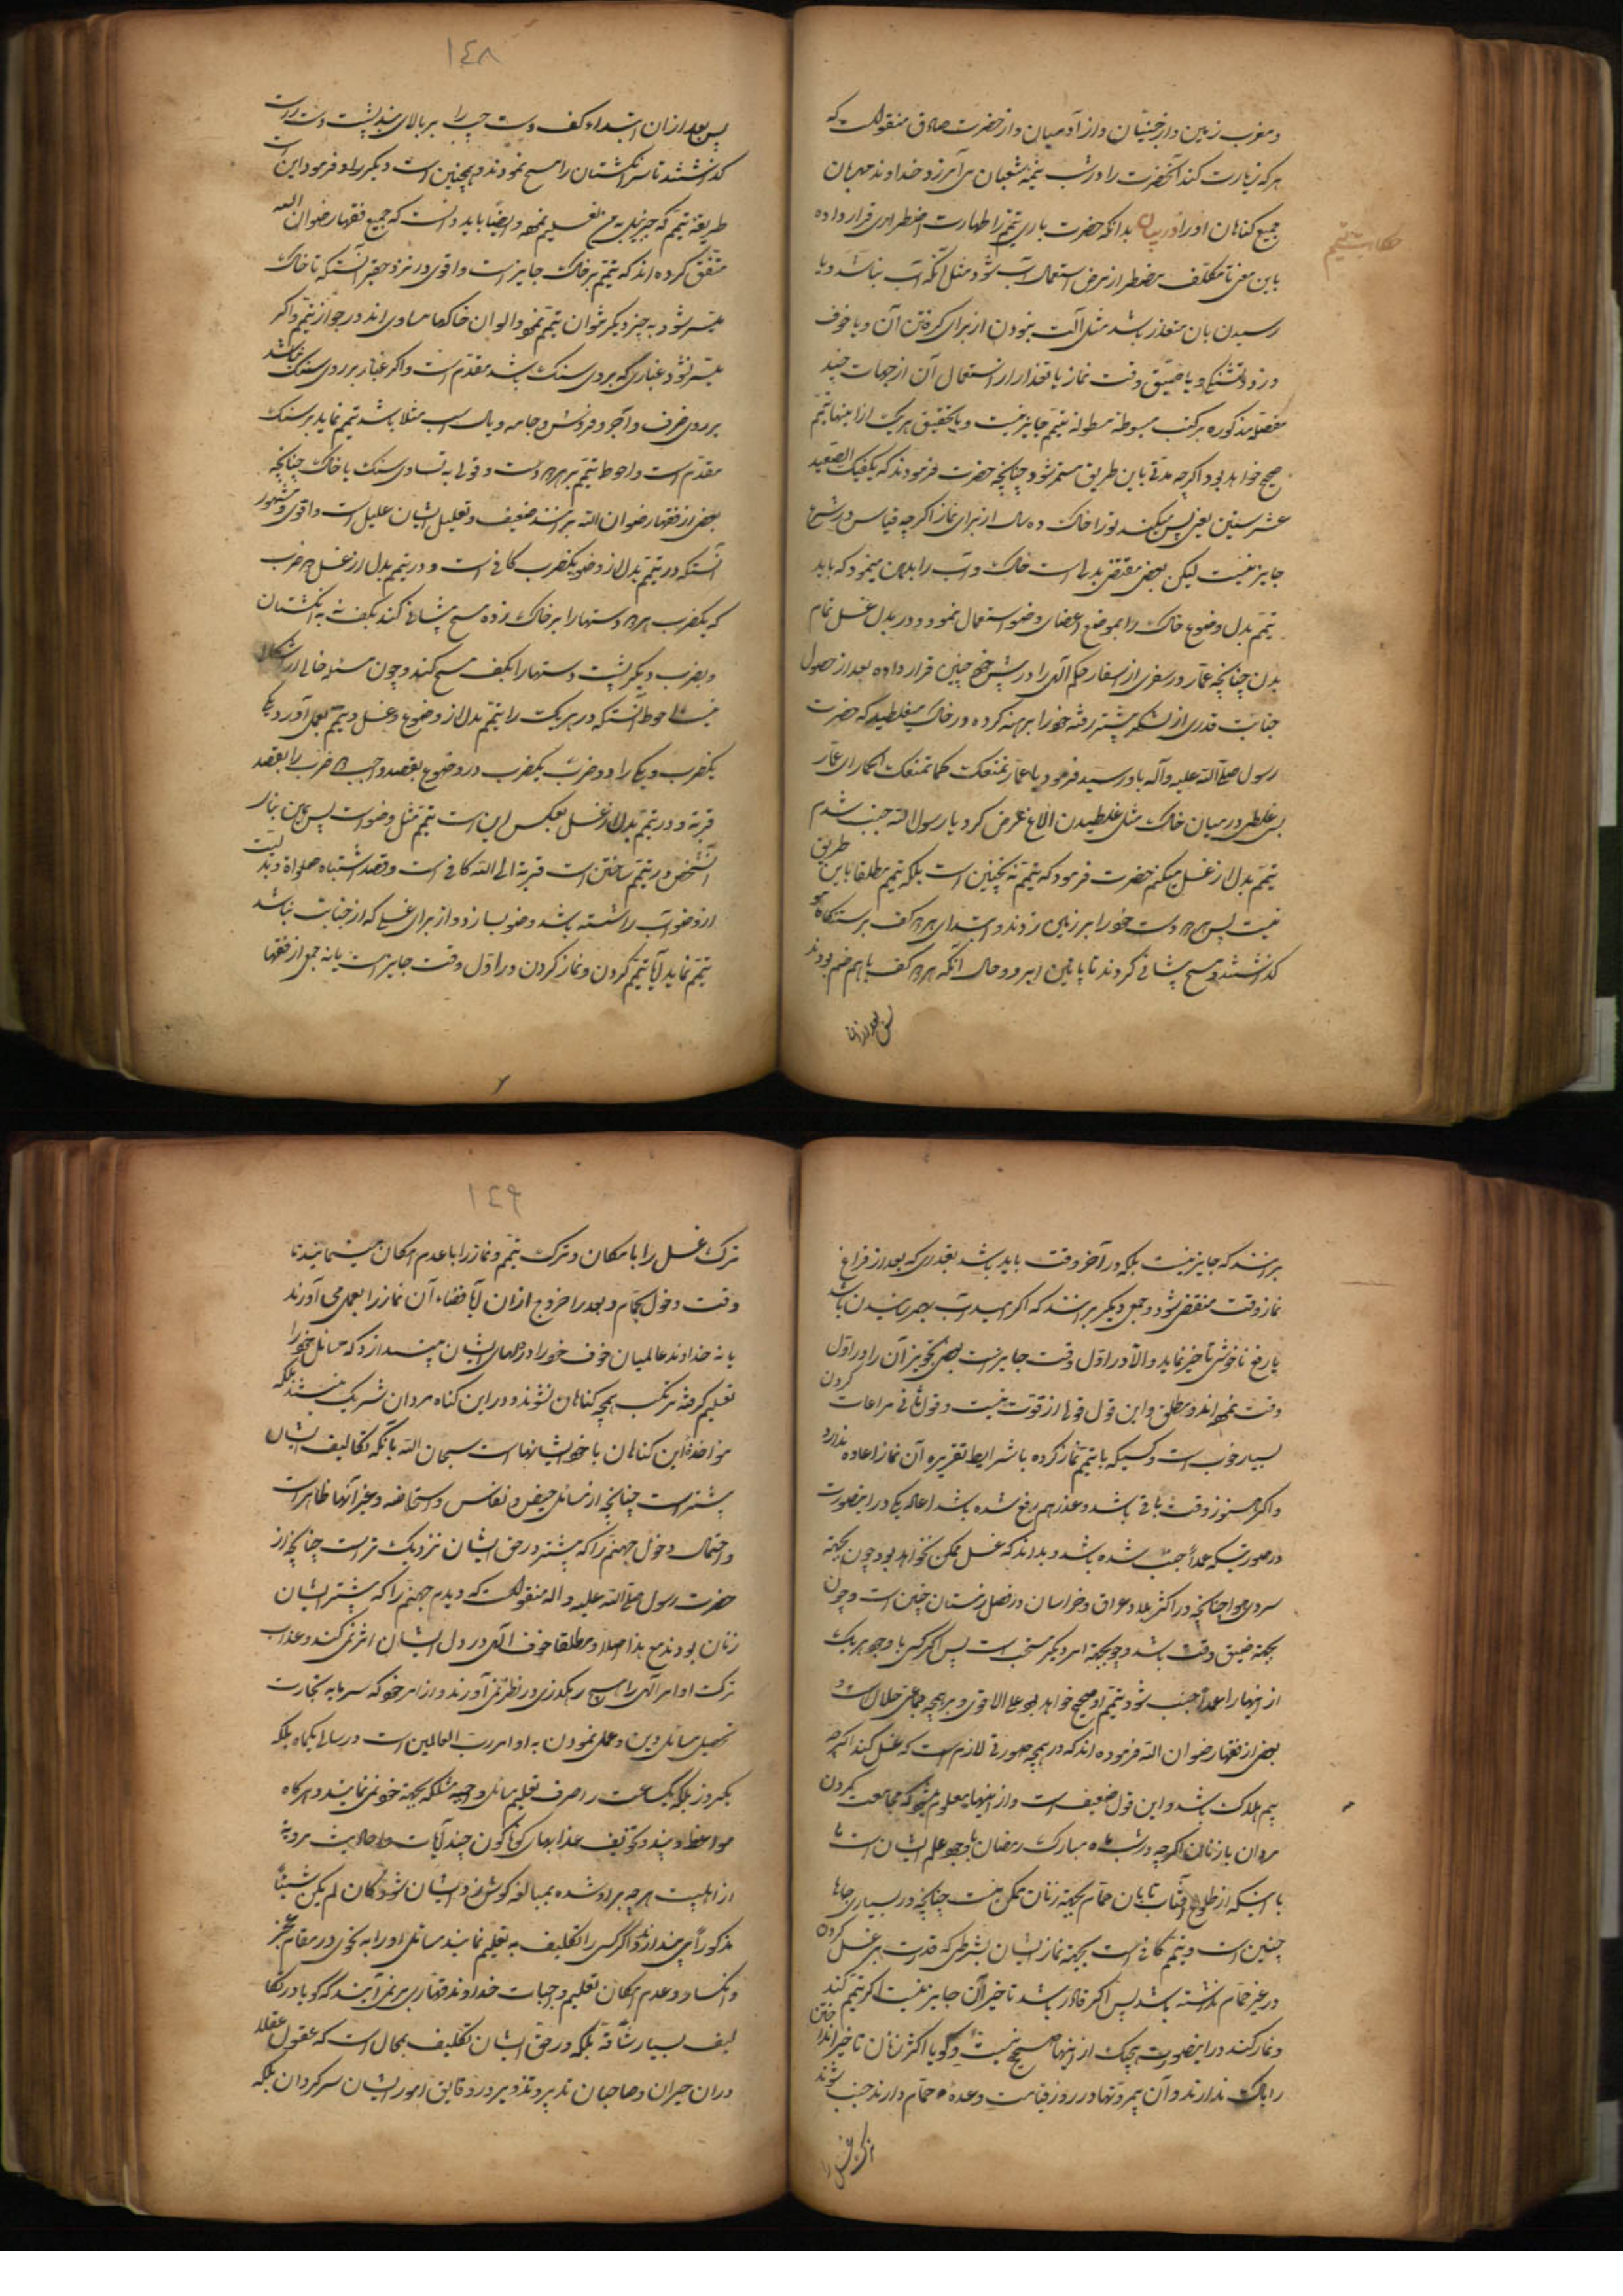 و مغرب زمین و از جنیان و از آدمیان و از حضرت صادق منقولست که
هر که زیارت کند آنحضرت را در شب نیمه شعبان می آمرزد خداوند مهربان
جمیع کناهان او را در بیان بدانکه حضرت باری تیمم را طهارت اضطراری قرار داده
حکایت تیمم
باین معنی تا مکلف مضطر از مرض استعمال آب شود مثل آنکه آب نباشد و یا
رسیدن بان متعذر باشد مثل آلت نبودن از برای کرفتن آن و یا خوف
دزد و تشنکی و یا ضیق وقت نماز یا تعذر از استعمال آن از جهات چند
مفصلا مذکوره در کتب مبسوطه مطوله تیمم جایز نیست و با تحقیق هر یک از اینها تیمم
صحیح خواهد بود اکرچه مدتی باین طریق مستمر شود چنانچه حضرت فرمودند که یکفیک الصعید
عشر سنین یعنی بس میکند تو را خاک ده سال از برای نماز اکرچه قیاس در شرع
جایز نیست لیکن بعضی مقتضی بدلی است خاک و آب را بدین مینمود که باید
تیمم بدل وضوء خاک را بموضع اعضای وضو استعمال نمود و در بدل غسل تمام
بدن چنانچه عمار در سفری از اسفار حکم آلهی را در پیش خود چنین قرار داده بعد از حصول
جنابت قدری از لشکر پیشتر رفته خود را برهنه کرده در خاک میغلطید که حضرت
رسول صلی الله علیه و آله باو رسید فرمود یا عمار تمعکت کما تمعک الحمار ای عمار
بس غلطی در میان خاک مثل غلطیدن الاغ عرض کرد یا رسول الله جنب شدم
تیمم بدل از غسل میکنم حضرت فرمود که تیمم نه بچنین است بلکه تیمم مطلقا باین طریق
نیست پس هر دو دست خود را بر زمین زدند و ابتدای هر دو کف بر رستنگاه مو
کذاشتند و مسح پیشانی کردند تا پایین ابرو و حال آنکه هر دو کف با هم ضم بودند
پس بعد از ان
١٤٨
پس بعد از ان ابتداء کف دست چپ را بر بالای بند پشت دست راست
کذاشتند تا سر انکشتان را مسح نمودند و همچنین است دیکر را و فرمود این است
طریقهٔ تیمم که جبرئیل به من تعلیم نمود و ایضا باید دانست که جمیع فقهاء رضوان الله
متفق کرده اند که تیمم بر خاک جایز است و اقوی در نزد حقیر آنستکه تا خاک
میسر شود به چیز دیکر نتوان تیمم نمود و الوان خاکها مساوی اند در جواز تیمم و اکر
میسر نشود غباری که بر روی سنک باشد مقدم است و اکر غبار بر روی سنک نباشد
بر روی ظرف و آجر و فروش و جامه و یال اسب مثلا باشد تیمم نماید بر سنک
مقدم است و احوط تیمم بر هر دو است و قولی به تساوی سنک با خاک چنانچه
بعضی از فقهاء رضوان الله برانند ضعیف و تعلیل ایشان علیل است و اقوی و مشهور
آنستکه در تیمم بدل از وضو یکضرب کافی است و در تیمم بدل از غسل دو ضرب
که یکضرب هر دو دستها را بر خاک زده مسح پیشانی کند بکف نه به انکشتان
و بضرب دیکر پشت دستها را بکف مسح کند و چون مسئله خالی از اشکال
نیست احوط آنستکه در هر یک را تیمم بدل از وضوء و غسل دو تیمم بعمل آورد یکی
یکضرب و یکی را دو ضرب یکضرب در وضوء بقصد واجب و دو ضرب را بقصد
قربة و در تیمم بدل از غسل بعکس این است تیمم مثل وضو است پس همان بنا
آنشخص در تیمم ساختن است قربة الی الله کافی است و قصد استباه صلواة و بدلیت
از وضو آب داشته باشد وضو بسازد و از برای غسلی که از جنابت نباشد
تیمم نماید آیا تیمم کردن و نماز کردن در اول وقت جایز است یا نه جمعی از فقها
برانند که جایز نیست بلکه در آخر وقت باید باشد بقدری که بعد از فراغ
نماز وقت منقضی شود و جمعی دیکر برانند که اکر امید آب بهم رسیدن باشد
یا رفع ناخوشی تأخیر نماید و الا در اول وقت جایز است بعضی تجویز آن را در اول
وقت نموده اند مطلق و این قول قولی از قوت نیست و قول ثانی مراعات کردن
بسیار خوب است و کسیکه با تیمم نماز کرده با شرایط تقریره آن نماز اعاده ندارد
و اکر هنوز وقت باقی باشد و عذر هم رفع شده باشد اعاده یکی در اینصورت
در صورتیکه عمدا جنب شده باشد و بداند که غسل ممکن نخواهد بود چون بجهة
سردی هوا چنانچه در اکثر بلاد عراق و خراسان در فصل زمستان چنین است و چون
بجهة ضیق وقت باشد و چه بجهة امر دیکر مستحب است پس اکر کسی با وجود هر یک
از اینها را عمدا جنب شود تیمم او صحیح خواهد بود علی الاقوی و بر همچه جماعتی حلال است
بعضی از فقهاء رضوان الله فرموده اند که در همچه صورتی لازم است که غسل کند اکر چه
بیم هلاک باشد و این قول ضعیف است و از اینها معلوم میشود که مجامعت کردن
مردان با زنان اکرچه در شب ماه مبارک رمضان با وجود علم ایشان است
با اینکه از طلوع آفتاب تابان حمام بجهة زنان ممکن نیست چنانچه در بسیاری جاها
چنین است و تیمم کافی است بجهة نماز ایشان بشرطی که قدرت بر غسل کردن
در غیر حمام نداشته باشد پس اکر قادر باشد تاخیر آن جایز نیست اکر تیمم کند
و نماز کند در اینصورت هیچیک از اینها صحیح نیست و کویا اکثر زنان تاخیر انداختن
را باک ندارند و آن بیمروتها در روز قیامت وعدهٔ حمام دارند جنب شوند
ترک غسل را
١٤٩
ترک غسل را با امکان و ترک تیمم و نماز را با عدم امکان مینمایند تا
وقت دخول حمام و بعد از خروج از ان آیا قضاء آن نماز را بعمل می آورند
یا نه خداوند عالمیان خوف خود را در دلهای ایشان بیندازد که مسائل خود را
تعلیم کرفته مرتکب همچه کناهان نشوند و در این کناه مردان شریک نیستند بلکه
مواخذهٔ این کناهان با خود ایشانهاست سبحان الله با آنکه تکالیف ایشان
بیشتر است چنانچه از مسائل حیض و نفاس و استحاضه و غیر آنها ظاهر است
و احتمال دخول جهنم را که بیشتر در حق ایشان نزدیک تر است چنانچه از
حضرت رسول صلی الله علیه و اله منقولست که دیدم جهنم را که بیشتر ایشان
زنان بودند مع هذا اصلا و مطلقا خوف آلهی در دل ایشان اثر نمی کند و عذاب
ترک اوامر آلهی را هیچ رهکذری در نظر نمی آورند و از امر خود که سرمایه تجارت
تحصیل مسائل دین و عمل نمودن به اوامر رب العالمین است در سالی یکماه بلکه
یکروز بلکه یکساعت را صرف تعلیم مسائل واجبه مشکله بجهة خود نمی نمایند و هرکاه
مواعظ و پند و تخویف عذابهای کوناکون چند آیات و احادیث مرویه
از اهلبیت هر چه براد شده بمبالغه کوش زد ایشان شود کان لم یکن شیئا
مذکورا می پندارند و اکر کسی را تکلیف به تعلیم نمایند مسائل او را به نحوی در مقام عجز
و انکسار و عدم امکان تعلیم واجبات خداوند قهاری بر نمی آیند که کویا در تکا
لیف بسیار شاقه بلکه در حق ایشان تکلیف بمحال است که عقول عقلا
در ان حیران و صاحبان تدبیر و تزویر در دقایق امور ایشان سرکردان بلکه